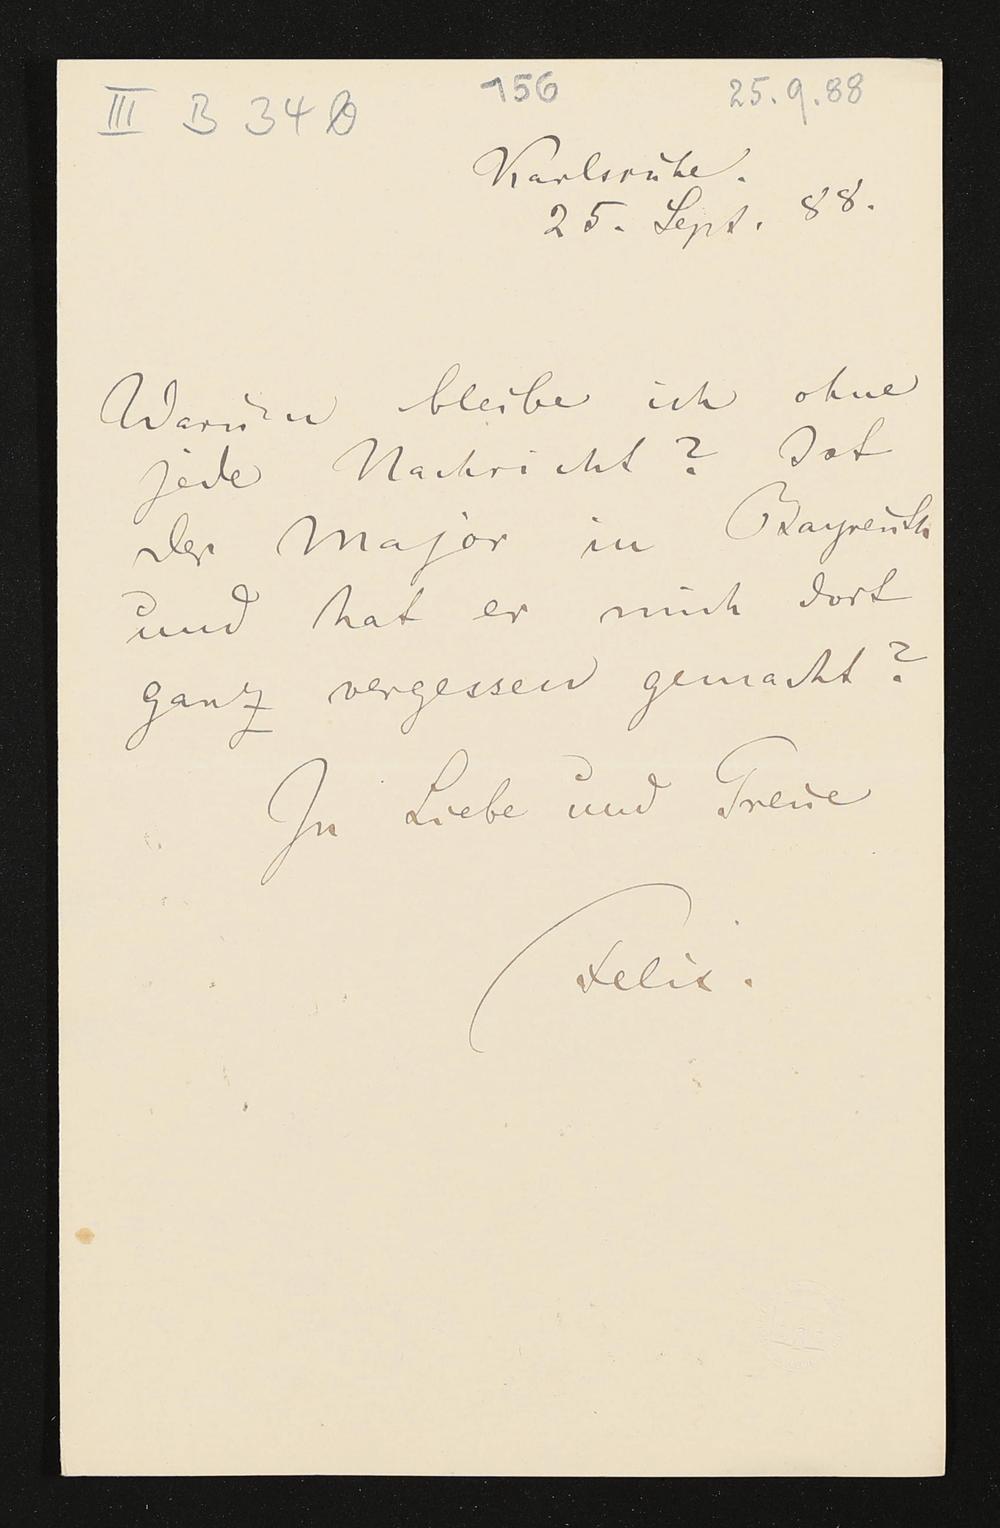 III B 34 b 156 25.9.88
Karlsruhe.
25. Sept. 88.
Warum bleibe ich ohne
jede Nachricht? Ist
der Major in Bayreuth
und hat er mich dort
ganz vergessen gemacht?
In Liebe und Treue
Felix.